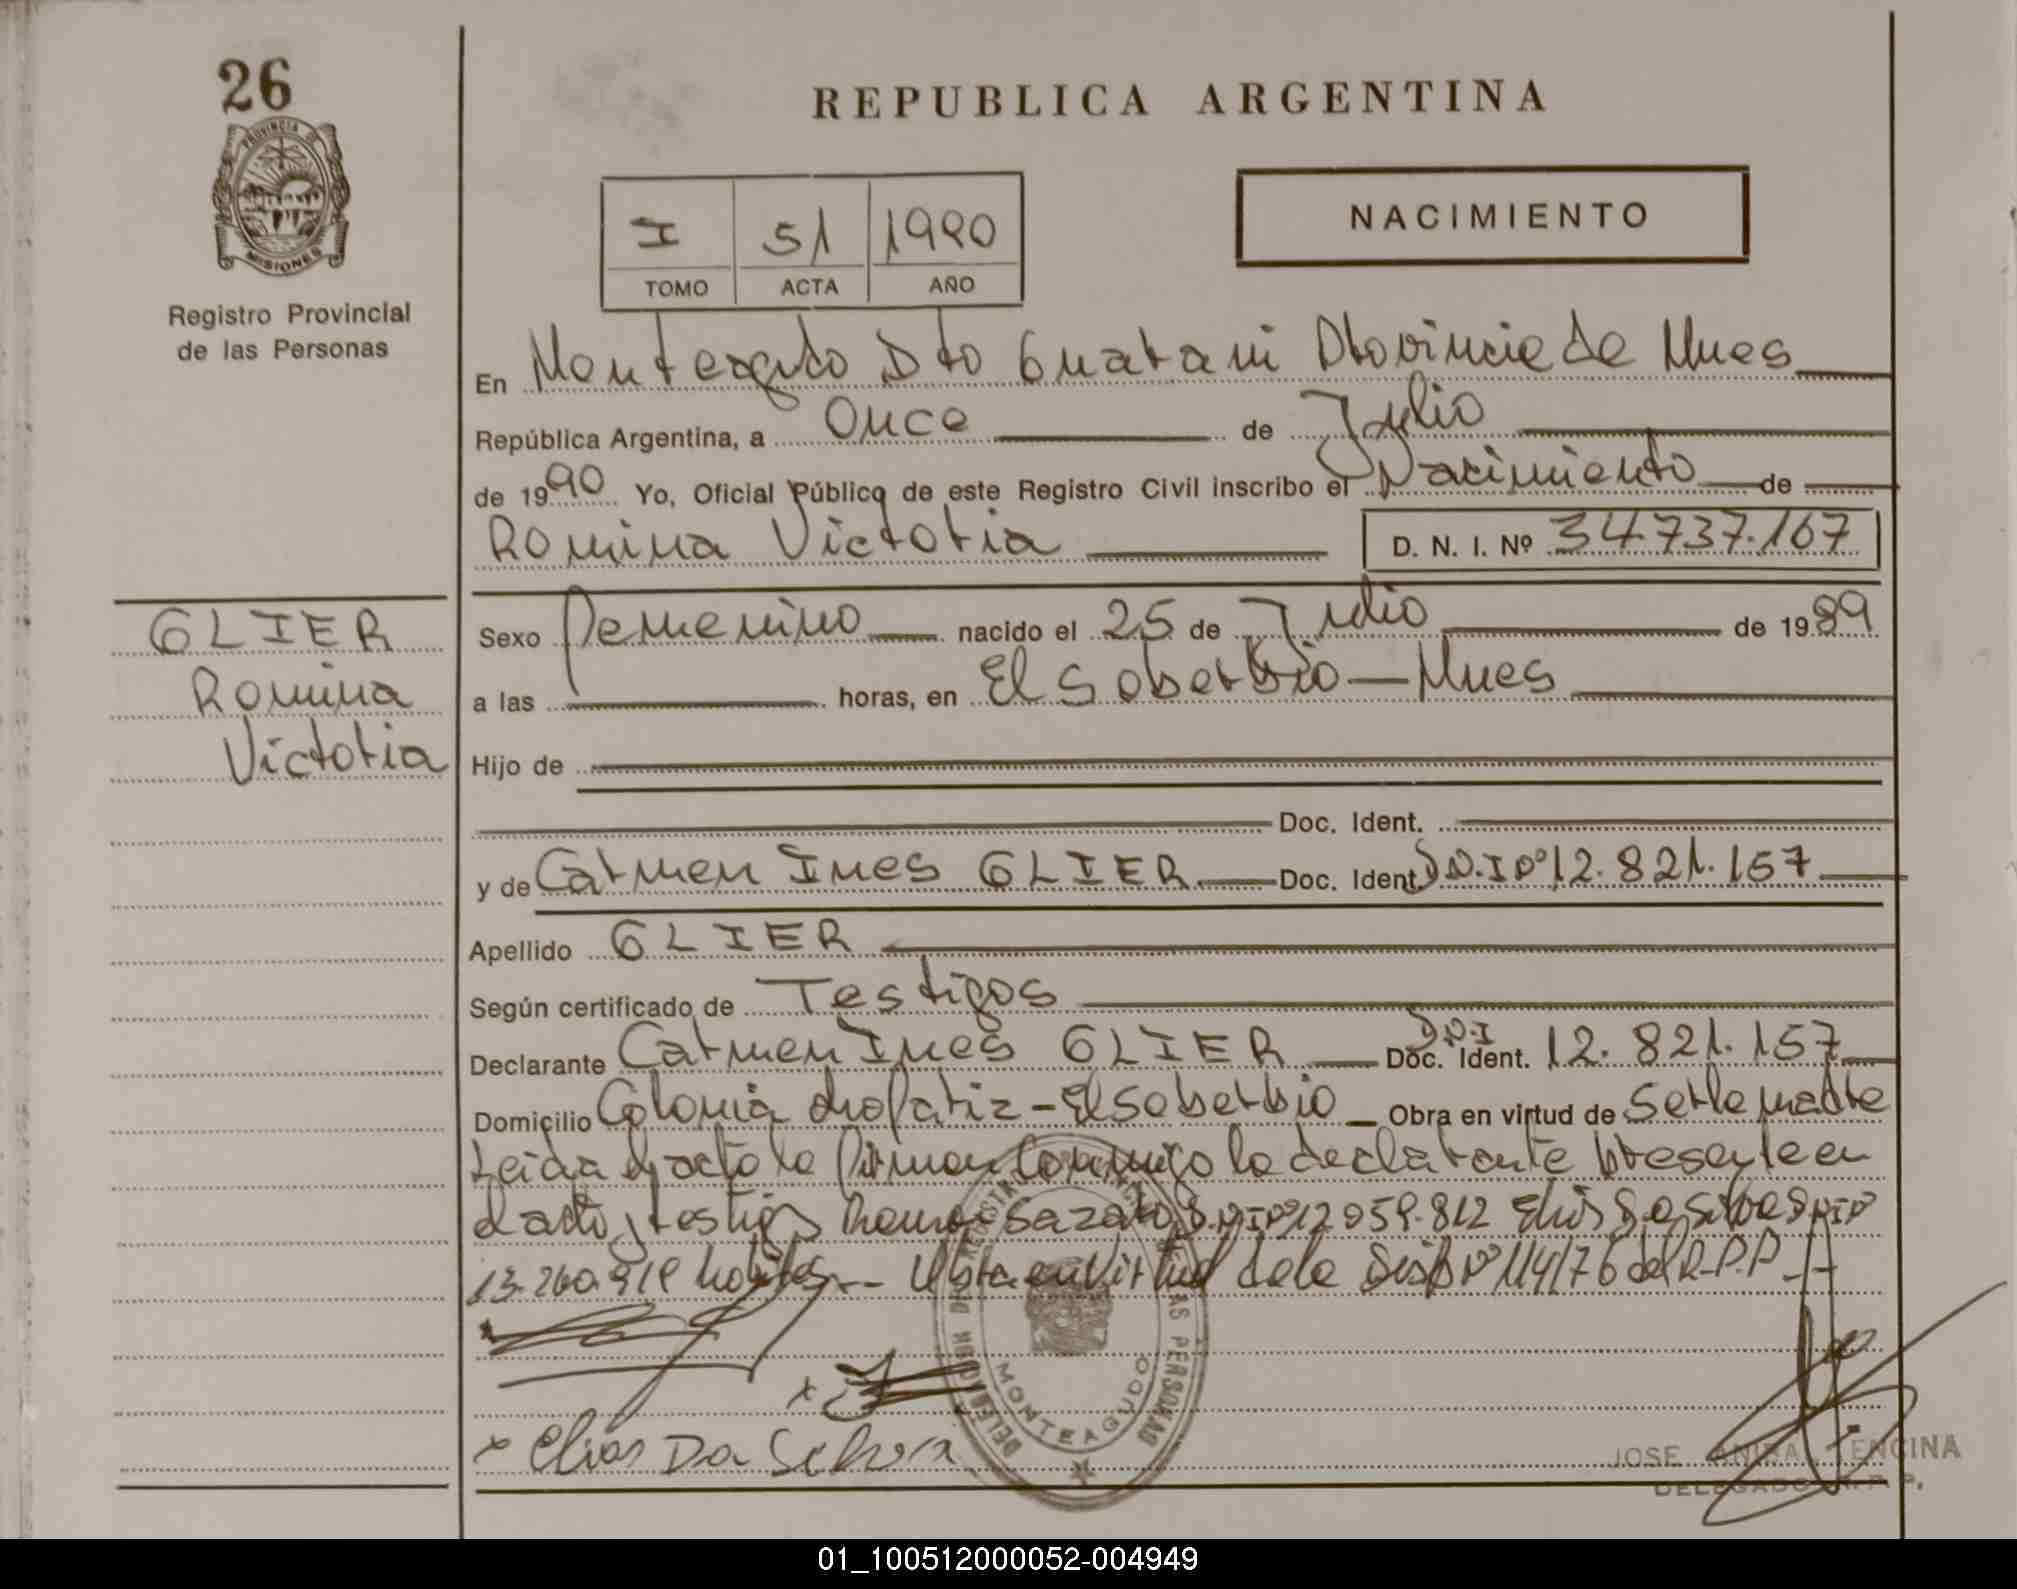 26
PROVINCIA DE
MISIONES
Registro Provincial
de las Personas
REPUBLICA ARGENTINA
NACIMIENTO
I 51 1990
TOMO ACTA AÑO
En Monteagudo Dto Guarani Provincia de Mnes
República Argentina, a Once de Julio
de 1990 Yo, Oficial Público de este Registro Civil inscribo el Nacimiento de
Romina Victoria D. N. I. Nº 34.737.167
GLIER
Romina
Victoria
Sexo Femenino nacido el 25 de Julio de 1989
a las horas, en El Soberbio - Mnes
Hijo de
Doc. Ident.
y de Carmen Ines GLIER Doc. Ident. D.N.I Nº 12.821.157
Apellido GLIER
Según certificado de Testigos
Declarante Carmen Ines GLIER Doc. Ident. D.N.I 12.821.157
Domicilio Colonia - El Soberbio Obra en virtud de Ser la madre
Leida el acta la firman conmigo la declarante presente en
el acto, testigos Sazaro D.N.I Nº 12.059.812 Elias Da Silva D.N.I Nº
13.260.919 habiles.- Obra en virtud de la Disp Nº 114/76 del R.P.P
x
x Elias Da Silva
MONTEAGUDO
JOSE ANIBAL ENCINA
DELEGADO R.P.P.
01_100512000052-004949